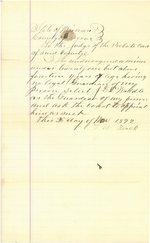 State of
County of
To the Judge of the Probate Court
of said County.
the undersigned a minor
under twenty one but above
fourteen years of age having
no legal Guardian of my
person Select J
as the Guardian of my person
and ask the Court to appoint
him as such
this 3 day of Nov 1898